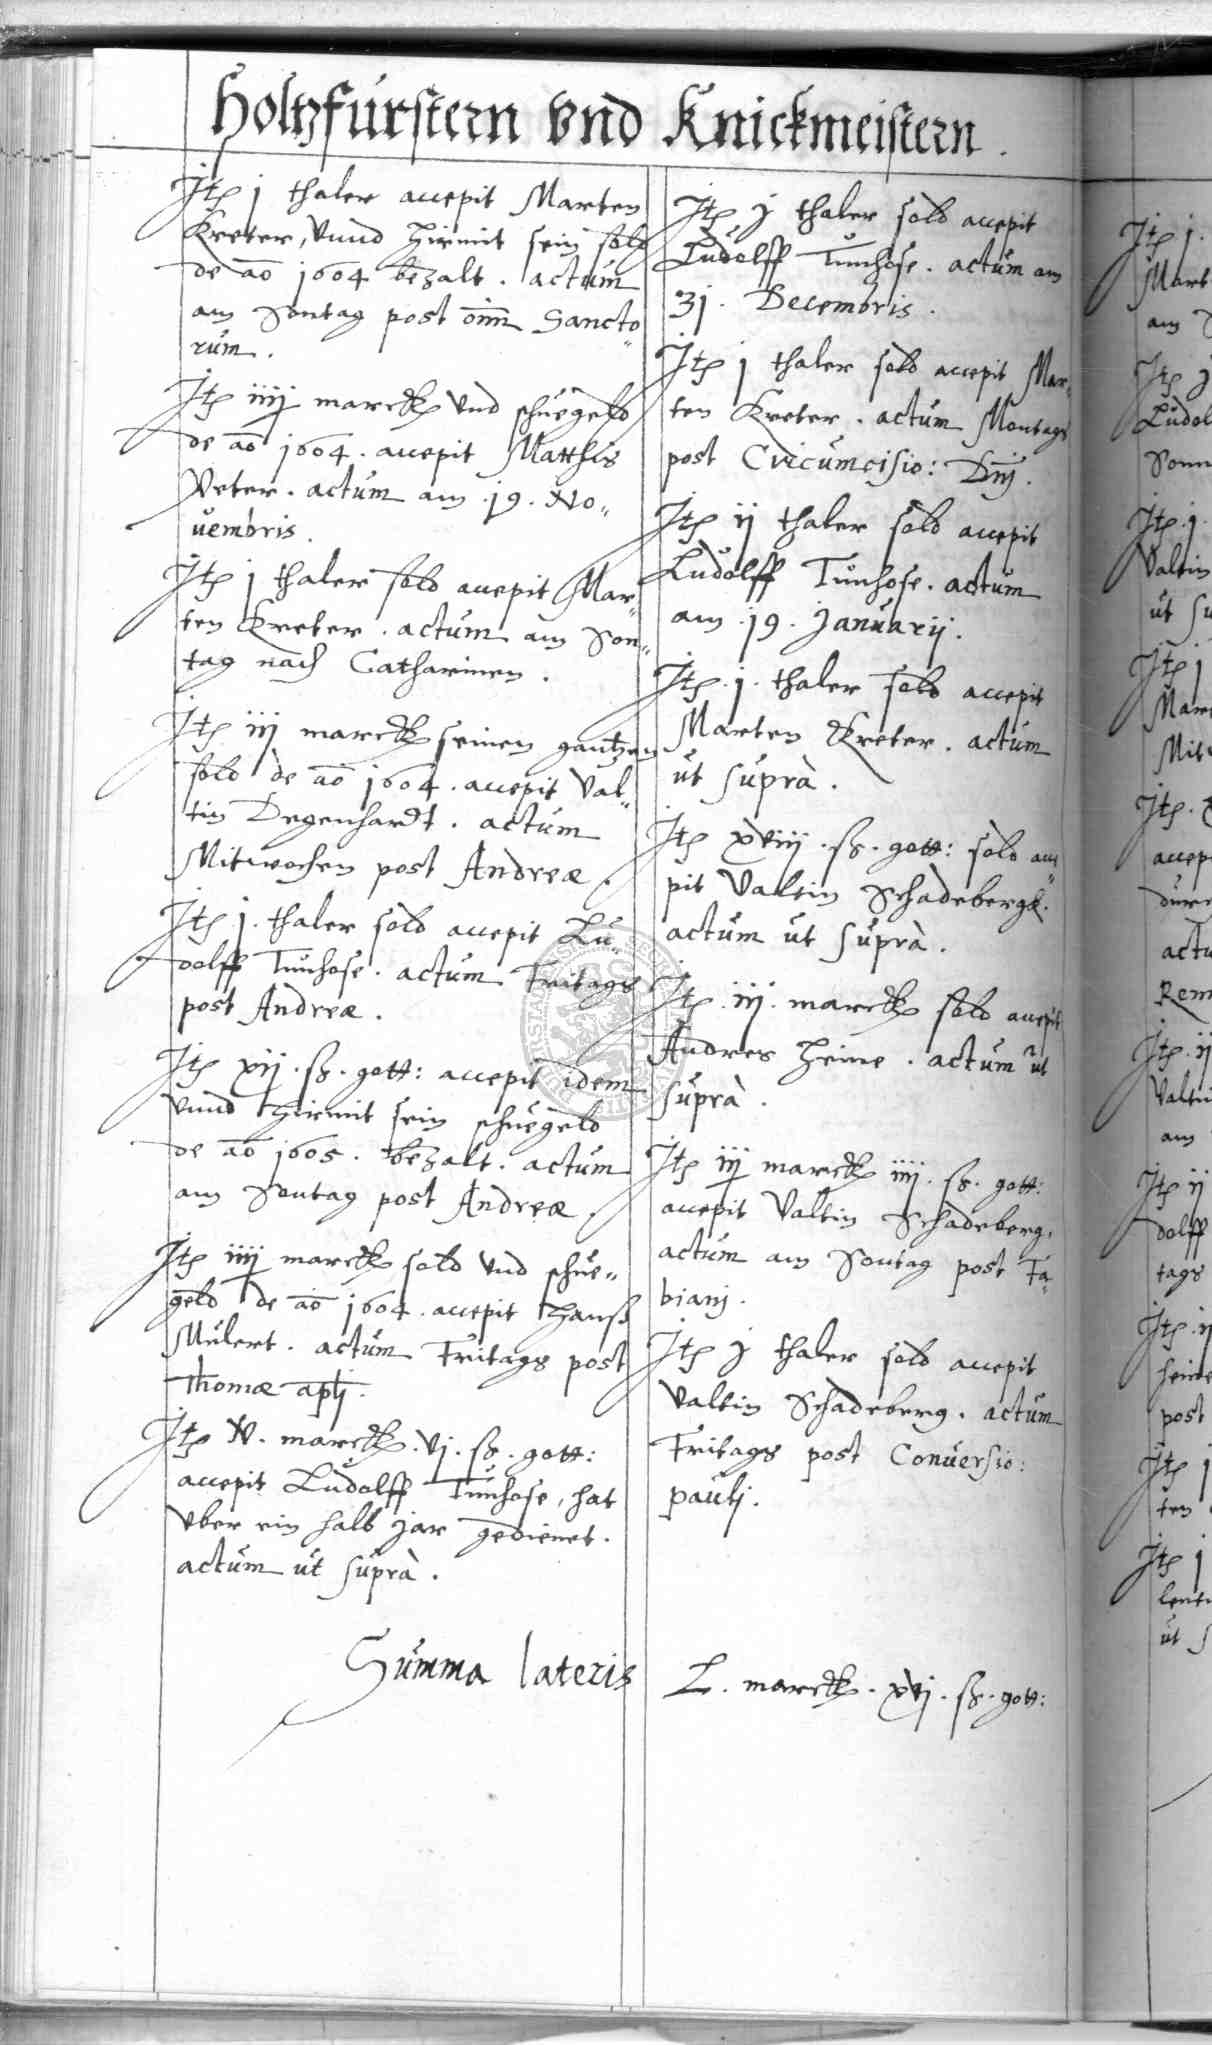 Holtzfürstern vnd Knickmeistern.
Itɞ j thaler accepit Marten
Kreter, vnnd hirmit sein sold
de aō 1604 bezalt. actum
am Sontag post om̄ Sancto„
rum.
Itɞ iiij marck vnd schuegeld
de aō 1604. accepit Matthis
Veter. actum am .19. No„
uembris.
Itɞ j thaler sold accepit Mar„
ten Kreter. actum am Son„
tag nach Catharinen.
Itɞ iij marck seinen gantzen
sold de aō 1604. accepit Val„
tin Degenhardt. actum
Mitwochen post Andreæ.
Itɞ j. thaler sold accepit Lu„
dolff Tunhose. actum Fritags
post Andreæ.
Itɞ xij. sz. gott: accepit idem
vnnd hirmit sein schuegeld
de aō 1605. bezalt. actum
am Sontag post Andreæ.
Itɞ iiij marck sold vnd schue„
geld de aō 1604. accepit Hanß
Mulert. actum Fritags post
Thomæ aplj.
Itɞ v. marck. vj. sz. gott:
accepit Ludolff Tunhose, hat
vber ein halb jar gedienet.
actum ut suprà.
Itɞ j thaler sold accepit
Ludolff Tunhose. actum am
3j. Decembris.
Itɞ j thaler sold accepit Mar„
ten Kreter. actum Montags
post Circumcisio: Dnj.
Itɞ ij thaler sold accepit
Ludolff Tunhose. actum
am .19. Januarij.
Itɞ .j. thaler sold accepit
Marten Kreter. actum
ut suprà.
Itɞ xviij. sz. gott: sold acce„
pit Valtin Schadebergk.
actum ut suprà.
Itɞ .iij. marck sold accepit
Andres Heine. actum ut
suprà.
Itɞ iij marck iiij. sz. gott:
accepit Valtin Schadeberg,
actum am Sontag post Fa„
bianj.
Itɞ j thaler sold accepit
Valtin Schadeberg. actum
Fritags post Conuersio:
paulj.
Summa lateris L. marck. xvj. sz. gott: